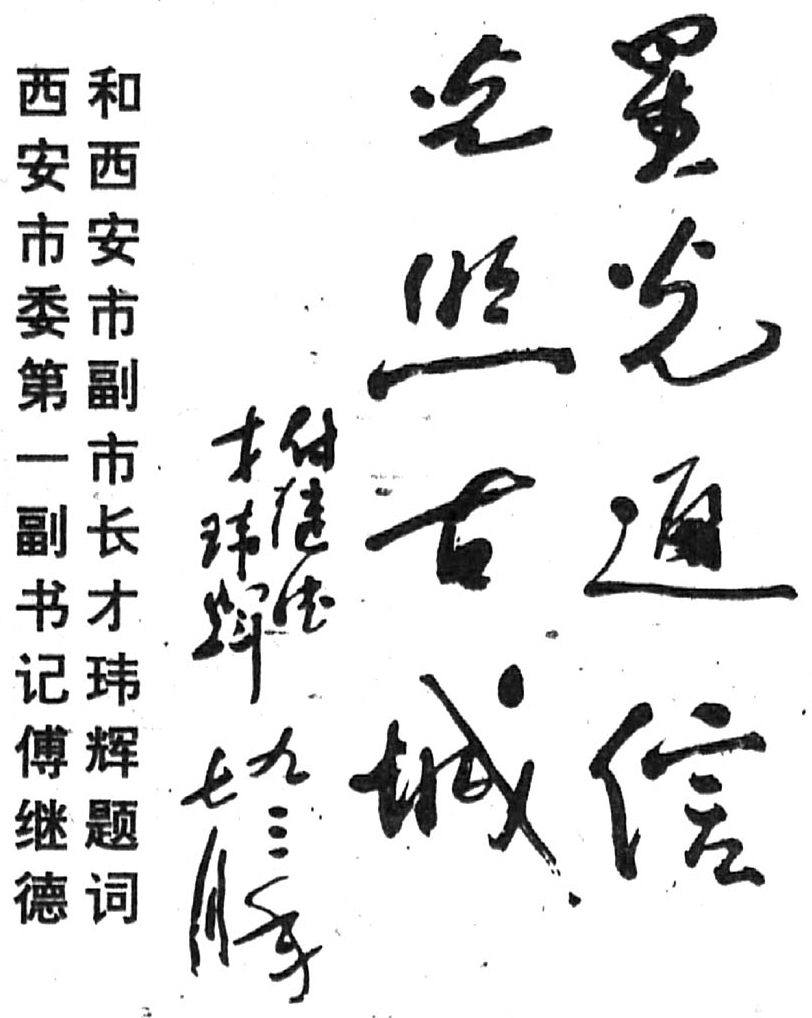 星光通信
光照古城
付继德
才玮辉
九三年
七月
西安市委第一副书记傅继德
和西安市副市长才玮辉题词